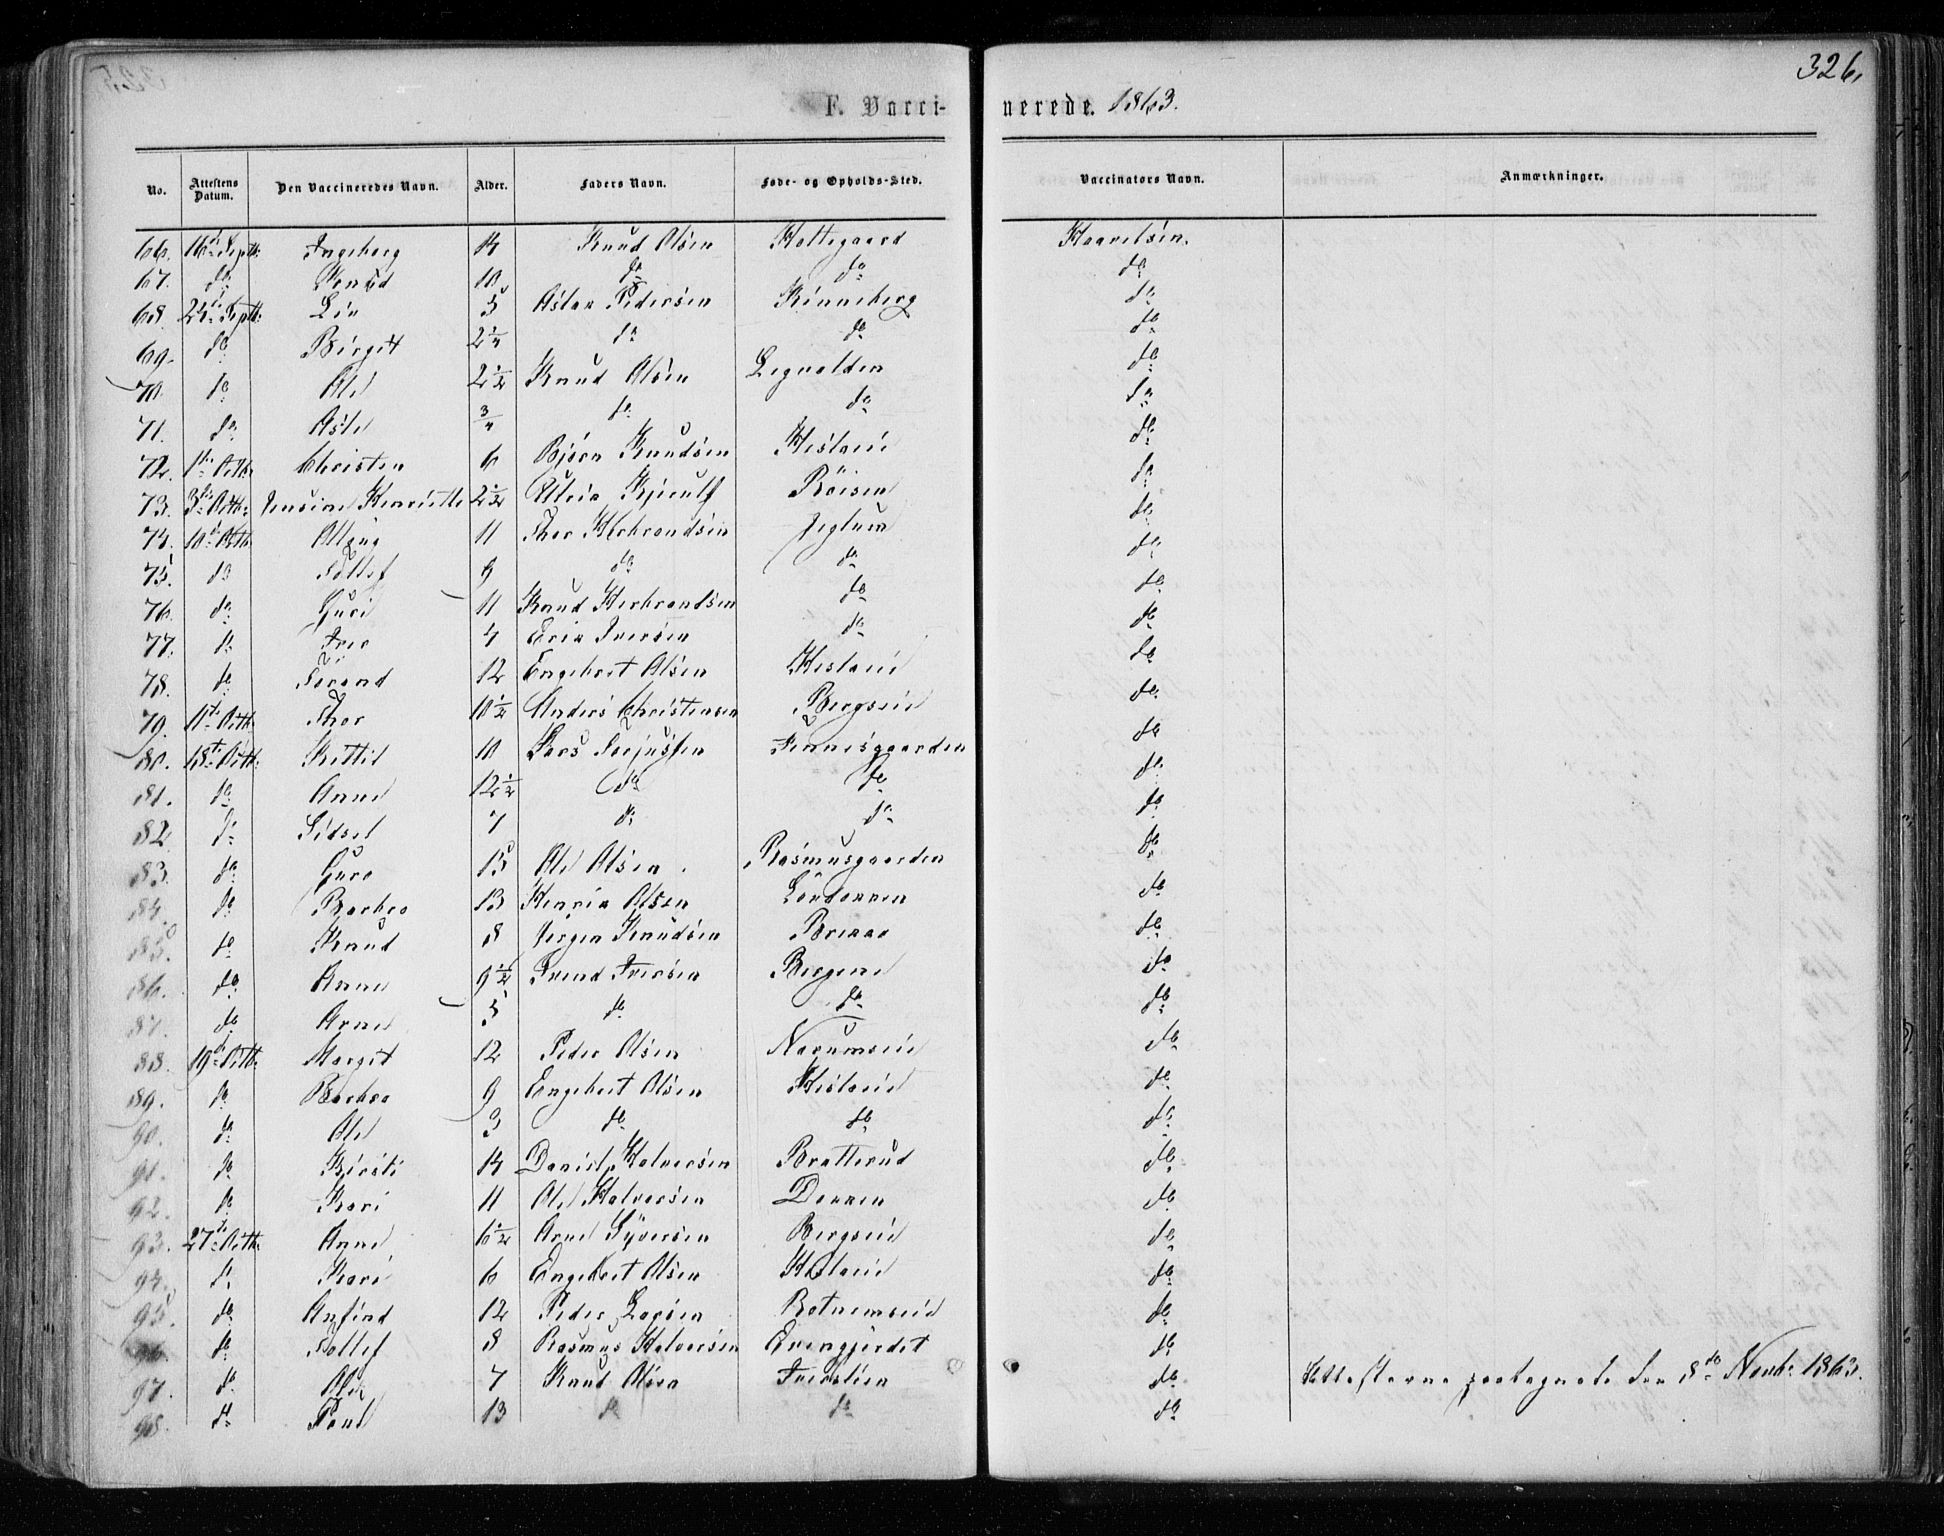 326.
F. Vaccinerede. 1863.
No. Attestens Datum. Den Vaccineredes Navn. Alder. Faders Navn. Føde- og Opholds-Sted. Vaccinators Navn. Anmærkninger.
66. 16de Septb: Ingeborg 14 Knud Olsen Holtegaard Haavelsen.
67. do Knud 10 do do do
68. Septb: Liv 5 Aslak Pedersen Rinneberg do
69. do Birgit 2 1/4 do do do
70. do Ole 2 1/2 Knud Olsen do
71. do Asle 3/4 do do do
72. 1ste Octb: Christen 6 Bjørn Knudsen Heslaeie do
73. 3die Octb: Jensine Henriette 2 1/2 Kjerulf Röisen do
74. 10de Octb: 11 Thor Herbrandsen Jeglum do
75. do Tollef 9 do do do
76. do Guri 11 Knud Herbrandsen do do
77. do Iver 4 Erik Iversen do do
78. do Torand 12 Engebret Olsen Heslaeie do
79. 11te Octb: Thor 10 1/2 Anders Christensen Bergseie do
80. 18de Octb: Kittil 10 Lars Torjussen Finnesgaarden do
81. do Anne 12 1/2 do do do
82. do Sidsel 7 do do do
83. do Guro 15 Ole Olsen Rasmusgaarden do
84. do Barbro 13 Henrik Olsen do
85. do Knud 8 Jørgen Knudsen do
86. do Anne 9 1/2 Trond Iversen do
87. do Arne 5 do do do
88. 19de Octb: Margit 12 Peder Olsen Narumseie do
89. do Barbro 9 Engebret Olsen Heslaeie do
90. do Ole 3 do do do
91. do Kirsti 14 Daniel Halvorsen Bratterud do
92. do Kari 11 Ole Halvorsen Dokken do
93. 27de Octb: Anne 6 1/2 Arne Syversen Bergseie do
94. do Kari 6 Engebret Olsen Heslaeie do
95. do Anfind 12 Peder Larsen Rotnemseie do
96. do Tollef 8 Rasmus Halvorsen Evengjerdet do
97. do Ole 7 Knud Olsen do Attesterne paategnede den 8de Novbr. 1863.
98. do 13 do do do